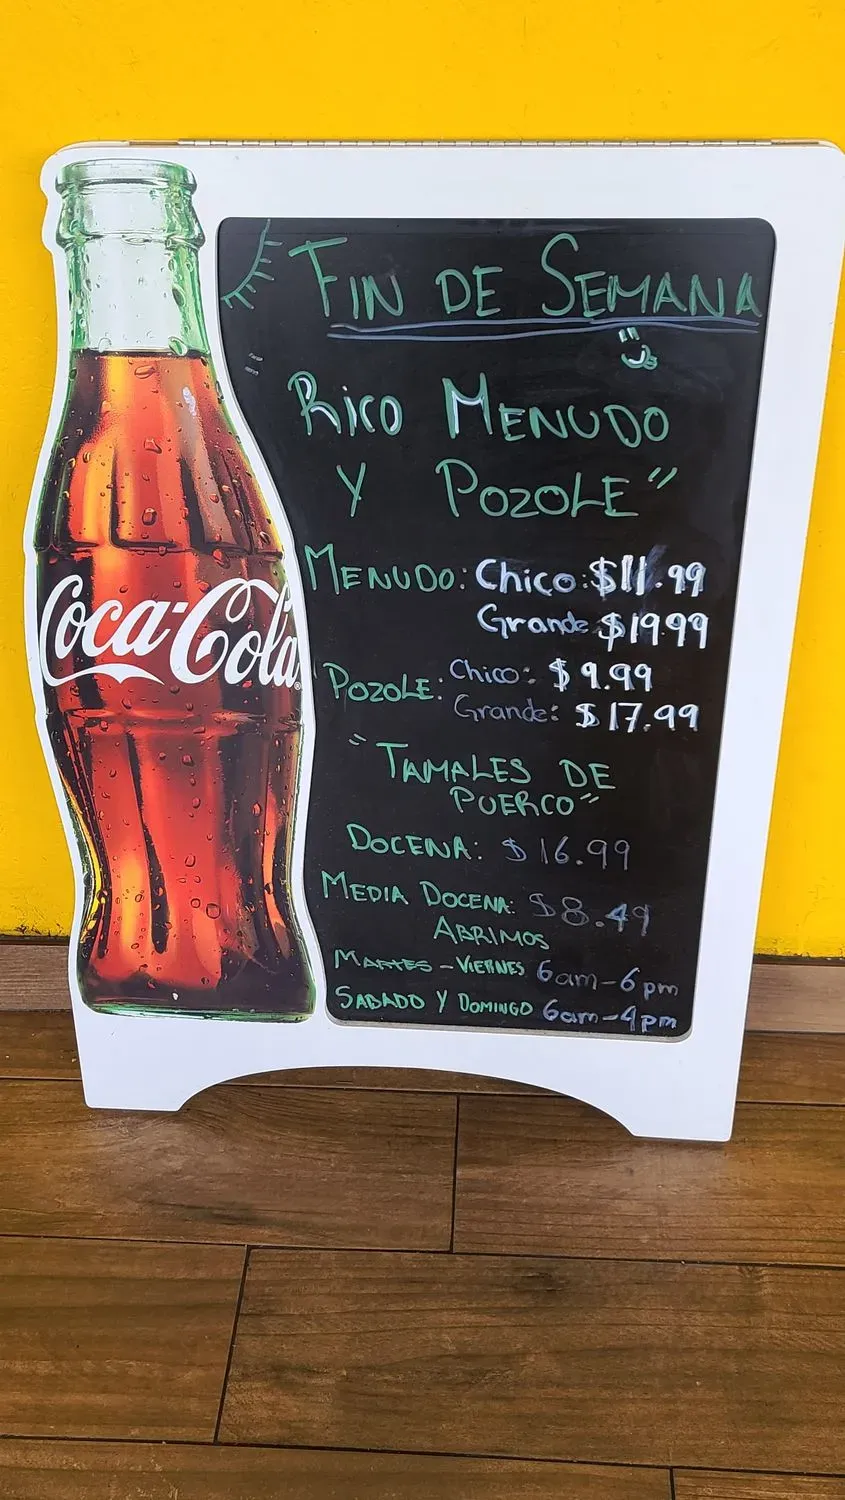 Coca-Cola
FIN DE SEMANA
RICO MENUDO
Y POZOLE"
MENUDO: Chico: $11.99
Grande $19.99
POZOLE: Chico: $9.99
Grande: $17.99
"TAMALES DE
PUERCO"
DOCENA: $16.99
MEDIA DOCENA: $8.49
ABRIMOS
MARTES - VIERNES 6am-6pm
SABADO Y DOMINGO 6am-4pm